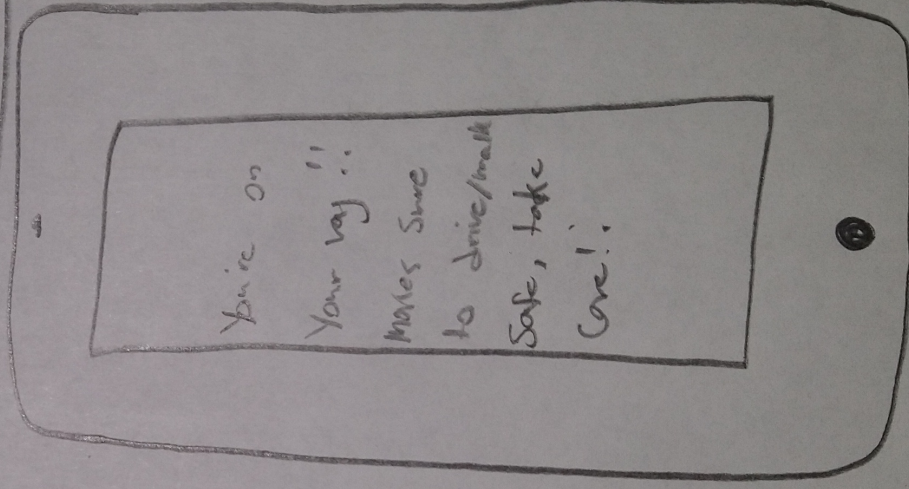 You're on
Your way!!
Makes sure
to drive/walk
safe, take
care!